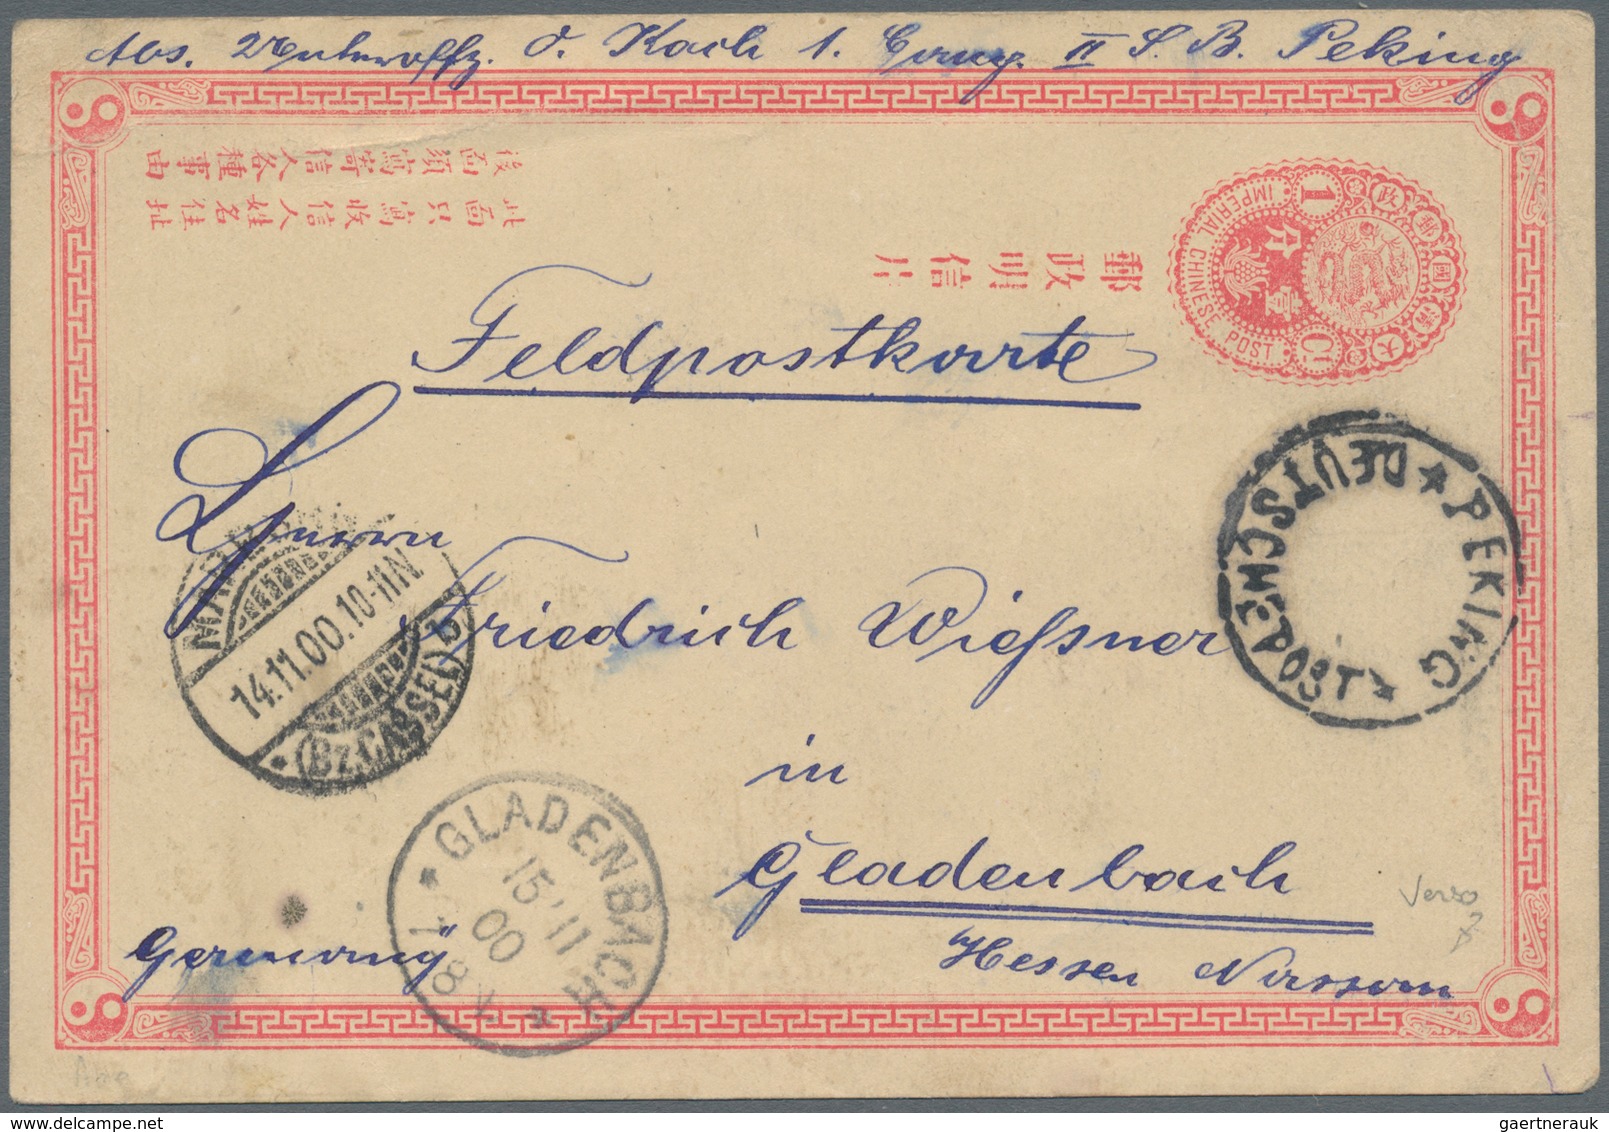 Abs. O. Koch 1. Comp. II S. B. Peking
後面須寫寄信人各種事由
此面只寫收信人姓名住址
郵政明信片
大清國郵政
壹分
1 C
IMPERIAL CHINESE POST
Feldpostkarte
Herrn
Friedrich Wießner
in
Gladenbach
Hessen Nassau
Germany
PEKING
DEUTSCHE POST
MARBURG
14.11.00.10-11N.
(Bz. CASSEL)
GLADENBACH
15.11
00
Verso
gaertnerauk.com